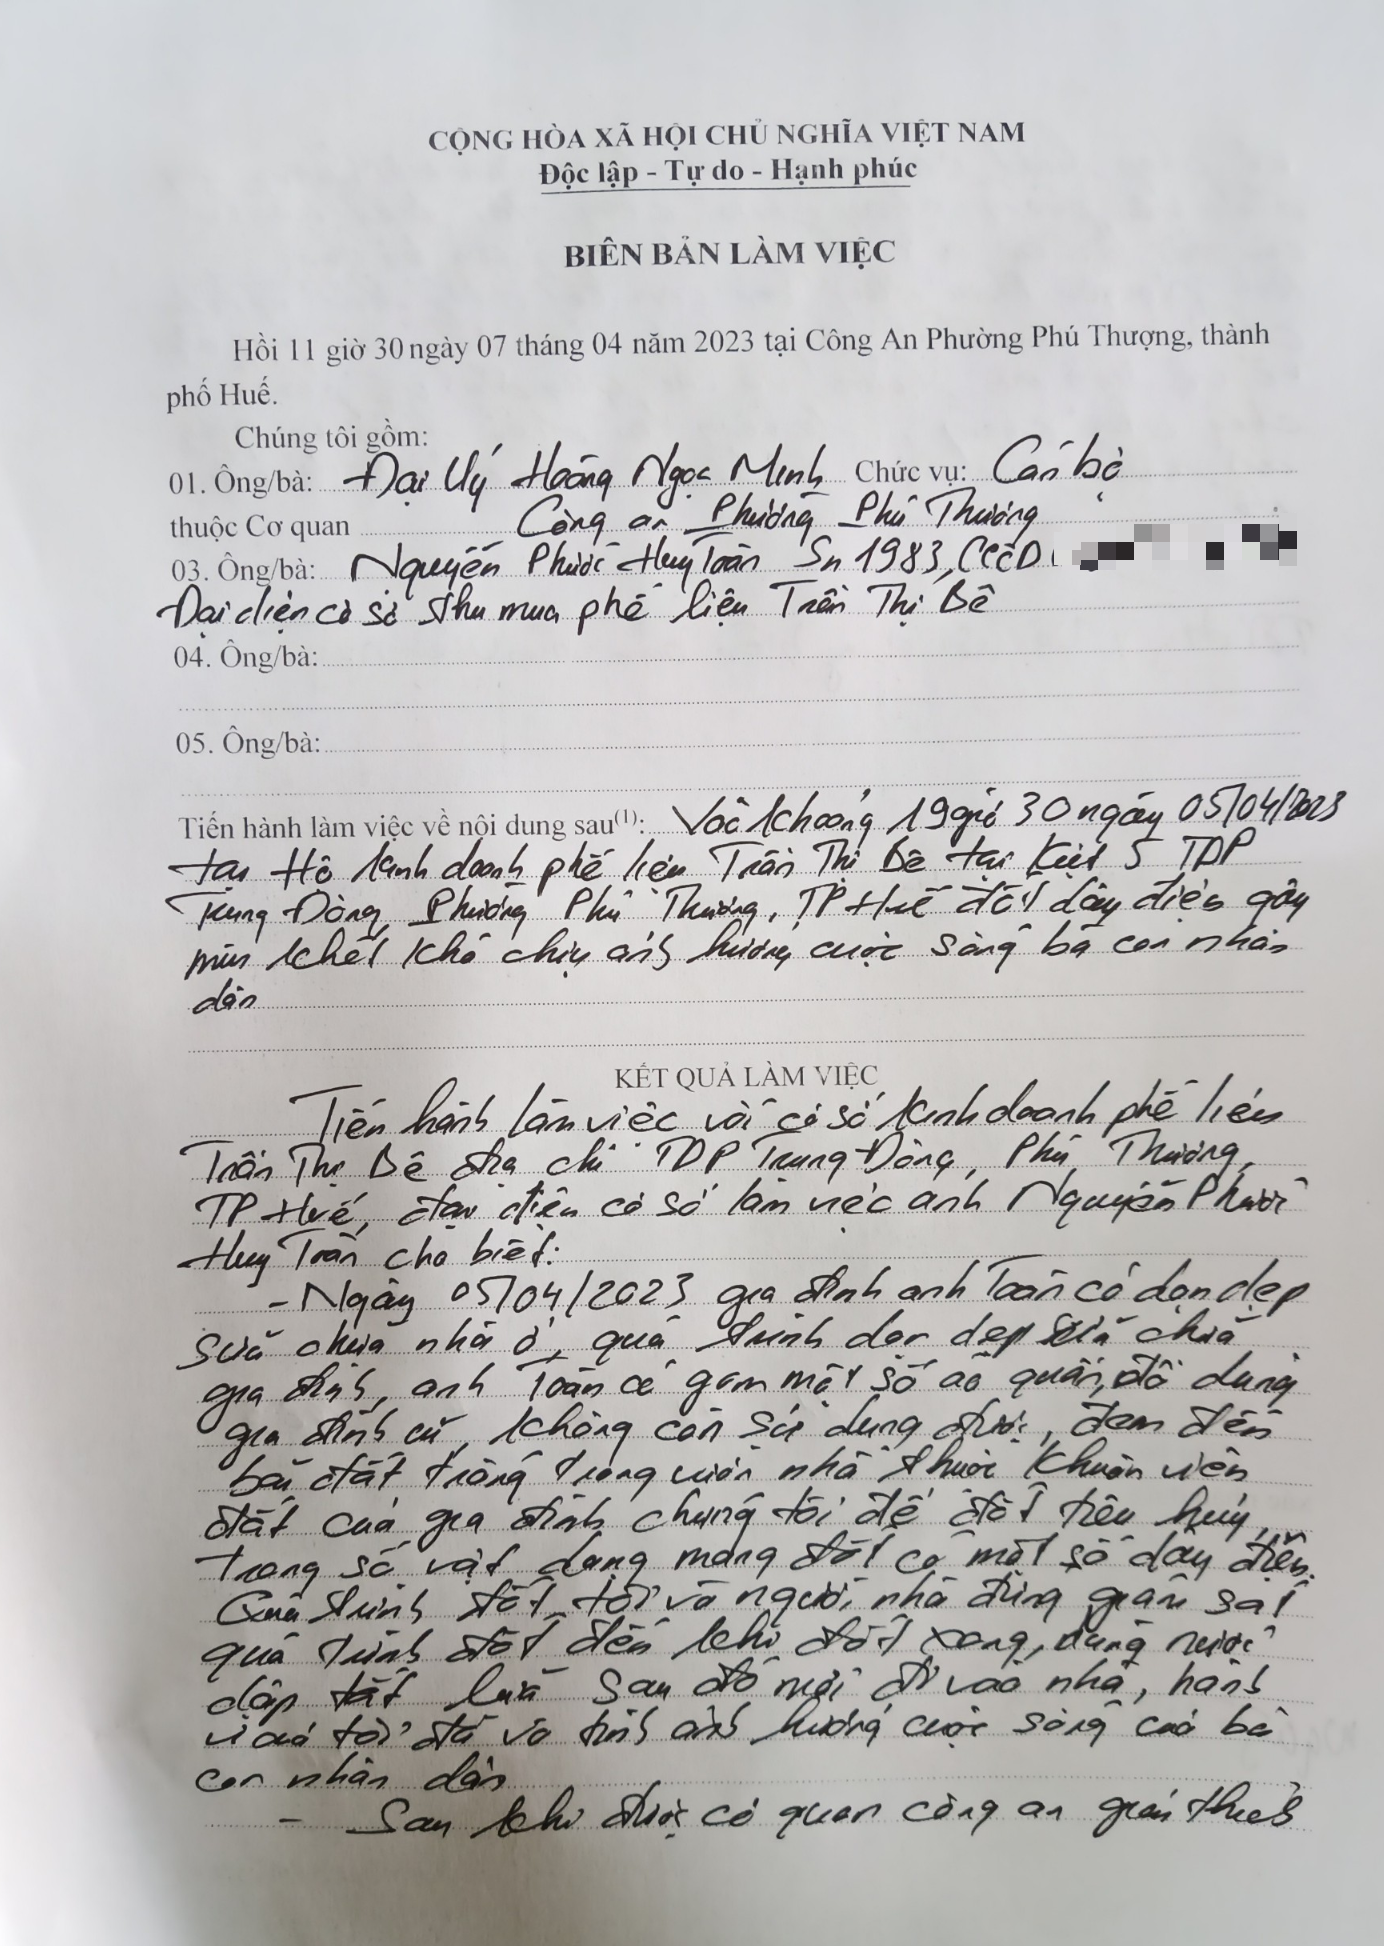 CỘNG HÒA XÃ HỘI CHỦ NGHĨA VIỆT NAM
Độc lập - Tự do - Hạnh phúc
BIÊN BẢN LÀM VIỆC
Hồi 11 giờ 30 ngày 07 tháng 04 năm 2023 tại Công An Phường Phú Thượng, thành
phố Huế.
Chúng tôi gồm:
01. Ông/bà: Đại Uý Hoàng Ngọc Minh Chức vụ: Cán bộ
thuộc Cơ quan Công an Phường Phú Thượng
03. Ông/bà: Nguyễn Phước Huy Toàn Sn 1983, CCCD
Đại diện cơ sở thu mua phế liệu Trần Thị Bê
04. Ông/bà:
05. Ông/bà:
Tiến hành làm việc về nội dung sau(1): Vào khoảng 19 giờ 30 ngày 05/04/2023
tại Hộ kinh doanh phế liệu Trần Thị Bê tại Kiệt 5 TDP
Trung Đông, Phường Phú Thượng, TP Huế đốt dây điện gây
mùi khét khó chịu ảnh hưởng cuộc sống bà con nhân
dân
KẾT QUẢ LÀM VIỆC
Tiến hành làm việc với cơ sở kinh doanh phế liệu
Trần Thị Bê địa chỉ TDP Trung Đông, Phú Thượng,
TP Huế, đại diện cơ sở làm việc anh Nguyễn Phước
Huy Toàn cho biết:
- Ngày 05/04/2023 gia đình anh Toàn có dọn dẹp
sửa chữa nhà ở, quá trình dọn dẹp sửa chữa
gia đình, anh Toàn có gom một số áo quần, đồ dùng
gia đình cũ, không còn sử dụng được, đem đến
bãi đất trống trong vườn nhà thuộc khuôn viên
đất của gia đình chúng tôi để đốt tiêu hủy,
trong số vật dụng mang đốt có một số dây điện.
Quá trình đốt, tôi và người nhà đứng giám sát
quá trình đốt đến khi đốt xong, dùng nước
dập tắt lửa sau đó mới đi vào nhà, hành
vi của tôi đã vô tình ảnh hưởng cuộc sống của bà
con nhân dân
- Sau khi được cơ quan công an giải thích